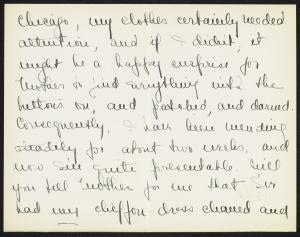 Chicago, my clothes certainly needed
attention, and if I didn't, it
might be a happy surprise for
Mother to find everything with the
buttons on, and patched, and darned.
Consequently, I have been mending
steadily for about two weeks, and
now I'm quite presentable. Will
you tell Mother for me that I've
had my chiffon dress cleaned and